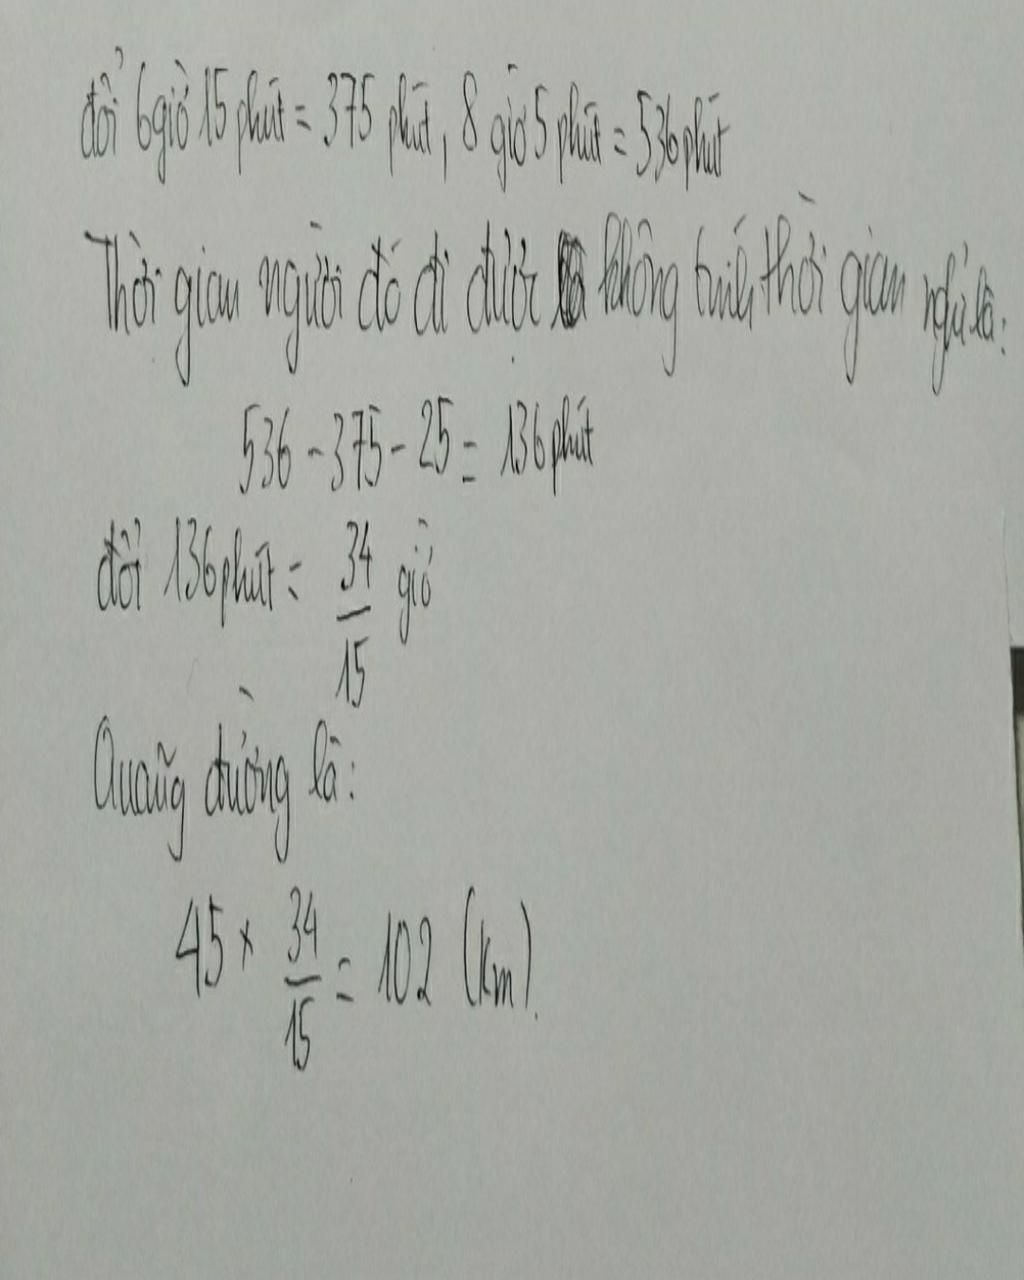 đổi 6 giờ 15 phút = 375 phút, 8 giờ 5 phút = 536 phút
Thời gian người đó đi được không tính thời gian nghỉ là:
536 - 375 - 25 = 136 phút
đổi 136 phút = 34/15 giờ
Quãng đường là:
45 × 34/15 = 102 (km).